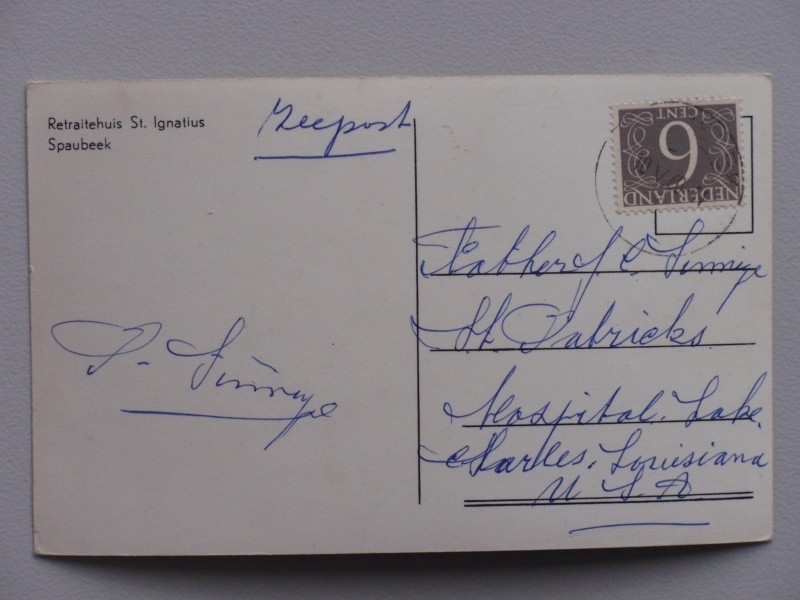 Retraitehuis St. Ignatius
Spaubeek
Zeepost
CENT
6
NEDERLAND
Father J. C.
St. Patricks
Hospital. Lake
Charles, Louisiana
U S A
P.